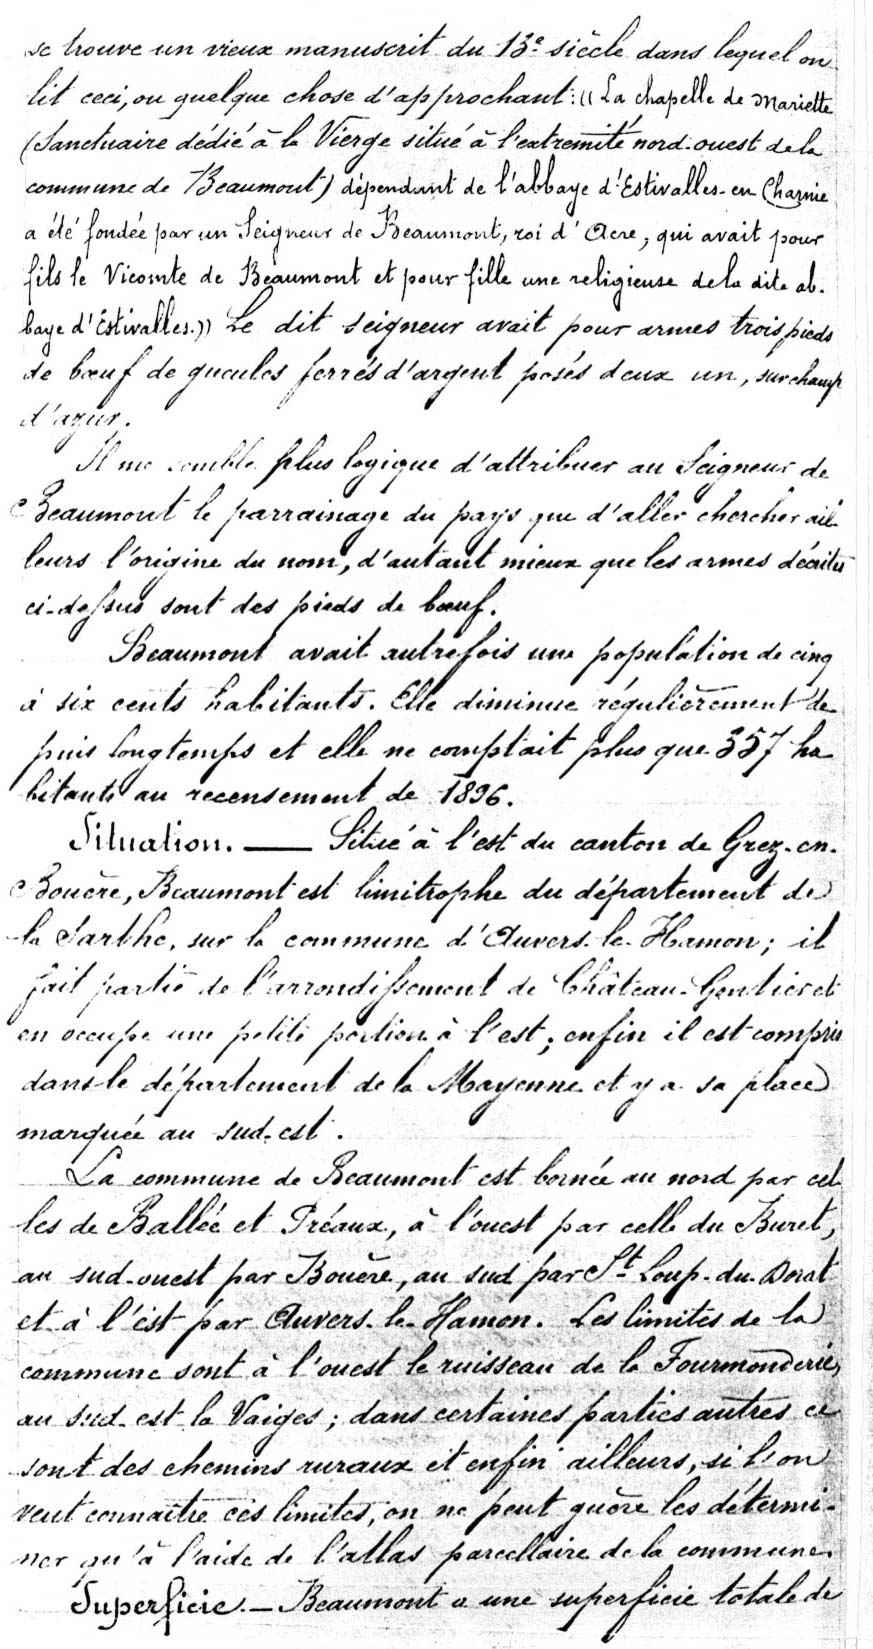 se trouve un vieux manuscrit du 13e siècle dans lequel on
lit ceci, ou quelque chose d'approchant : (( La chapelle de Mariette
(Sanctuaire dédié à la Vierge situé à l'extremité nord-ouest de la
commune de Beaumont) dépendant de l'abbaye d'Estivalles-en Charnie
a été fondée par un Seigneur de Beaumont, roi d'Acre, qui avait pour
fils le Vicomte de Beaumont et pour fille une religieuse de la dite ab-
baye d'Estivalles. )) Le dit seigneur avait pour armes trois pieds
de bœuf de gueules ferrés d'argent posés deux un, sur champ
d'azur.
Il me semble plus logique d'attribuer au Seigneur de
Beaumont le parrainage du pays que d'aller chercher ail-
leurs l'origine du nom, d'autant mieux que les armes décrites
ci-dessus sont des pieds de bœuf.
Beaumont avait autrefois une population de cinq
à six cents habitants. Elle diminue régulièrement de
puis longtemps et elle ne comptait plus que 357 ha
bitants au recensement de 1896.
Situation. — Situé à l'est du canton de Grez-en-
Bouère, Beaumont est limitrophe du département de
la Sarthe, sur la commune d'Auvers-le-Hamon ; il
fait partie de l'arrondissement de Château-Gontier et
en occupe une petite portion à l'est ; enfin il est compris
dans le département de la Mayenne et y a sa place
marquée au sud-est.
La commune de Beaumont est bornée au nord par cel
les de Ballée et Préaux, à l'ouest par celle du Buret,
au sud-ouest par Bouère, au sud par St-Loup-du-Dorat
et à l'est par Auvers-le-Hamon. Les limites de la
commune sont à l'ouest le ruisseau de la Fourmonderie,
au sud-est la Vaiges ; dans certaines parties autres ce
sont des chemins ruraux et enfin ailleurs, si l'on
veut connaître ces limites, on ne peut guère les détermi-
ner qu'à l'aide de l'atlas parcellaire de la commune.
Superficie. — Beaumont a une superficie totale de